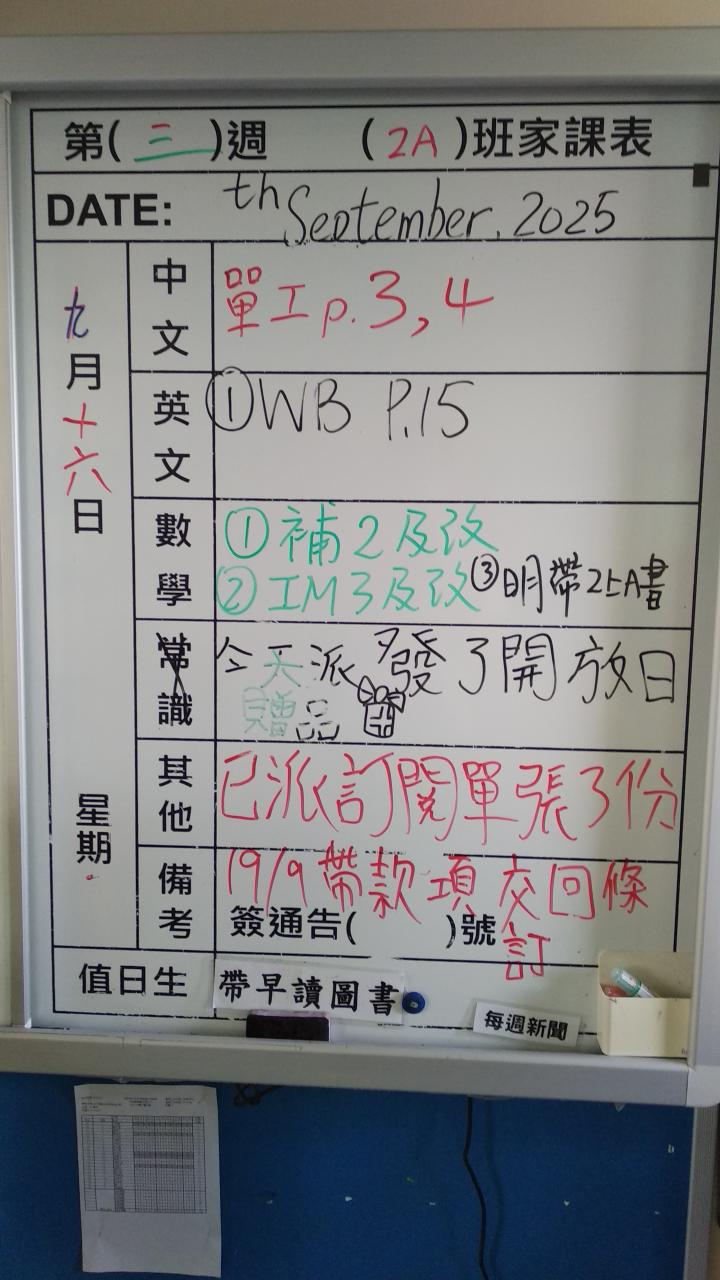 第(三)週 (2A)班家課表
DATE: th September. 2025
九月十六日
星期
中文
單工 p.3,4
英文
①WB P.15
數學
①補2及改
②IM3及改 ③明帶2上A書
常識
今天派發了開放日
贈品
其他
已派訂閱單張3份
備考
19/9帶款項交回條
簽通告( )號
訂
值日生
帶早讀圖書
每週新聞